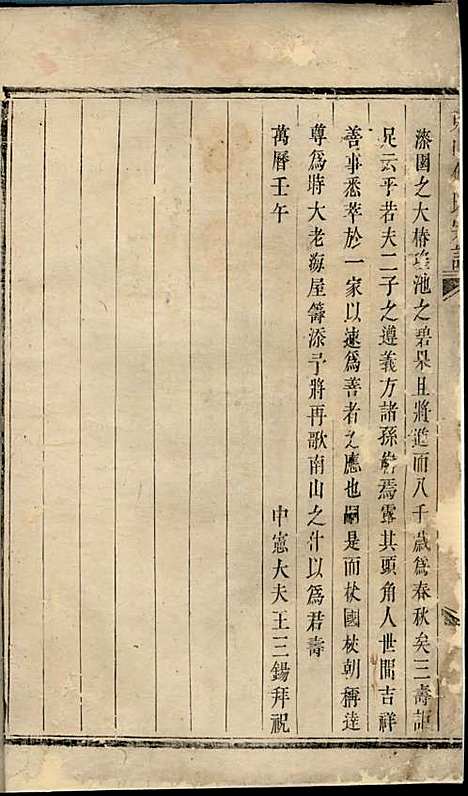 漆園之大椿瑤池之碧果且將進而八千歲爲春秋矣三壽詎
足云乎若夫二子之遵義方諸孫嶄焉露其頭角人世間吉祥
善事悉萃於一家以速爲善者之應也嗣是而杖國杖朝稱達
尊爲時大老海屋籌添予將再歌南山之什以爲君壽
萬曆壬午
中憲大夫王三錫拜祝